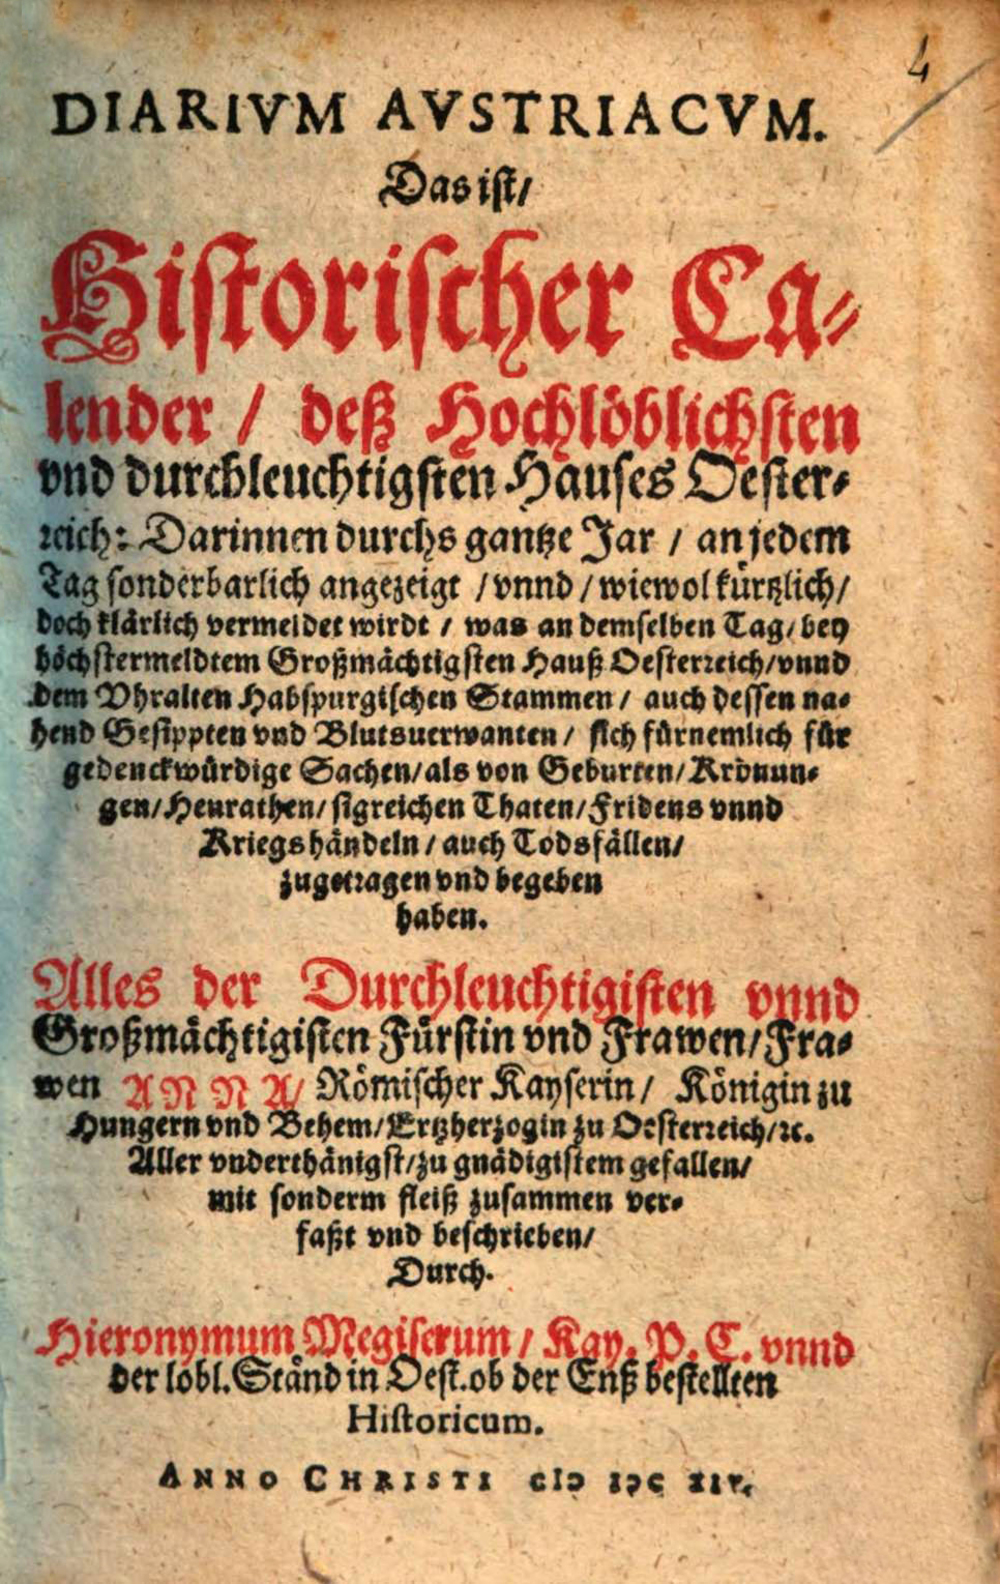 4
DIARIVM AVSTRIACVM.
Das ist/
Historischer Ca-
lender / deß Hochlöblichsten
vnd durchleuchtigsten Hauses Oester-
reich: Darinnen durchs gantze Jar / an jedem
Tag sonderbarlich angezeigt / vnnd / wiewol kürtzlich/
doch klärlich vermeldet wirdt / was an demselben Tag/ bey
höchstermeldtem Großmächtigsten Hauß Oesterreich/ vnnd
dem Vhralten Habspurgischen Stammen / auch dessen na-
hend Gesippten vnd Blutsuerwanten / sich fürnemlich für
gedenckwürdige Sachen/ als von Geburten/ Krönun-
gen/ Heurathen/ sigreichen Thaten/ Fridens vnnd
Kriegshändeln / auch Todsfällen/
zugetragen vnd begeben
haben.
Alles der Durchleuchtigisten vnnd
Großmächtigisten Fürstin vnd Frawen/ Fra-
wen ANNA/ Römischer Kayserin / Königin zu
Hungern vnd Behem/ Ertzherzogin zu Oesterreich/ ꝛc.
Aller vnderthänigst/ zu gnädigistem gefallen/
mit sonderm fleiß zusammen ver-
faßt vnd beschrieben/
Durch.
Hieronymum Megiserum / Kay. P. C. vnnd
der lobl. Ständ in Oest. ob der Enß bestellten
Historicum.
ANNO CHRISTI cIↄ Iↄc XIV.